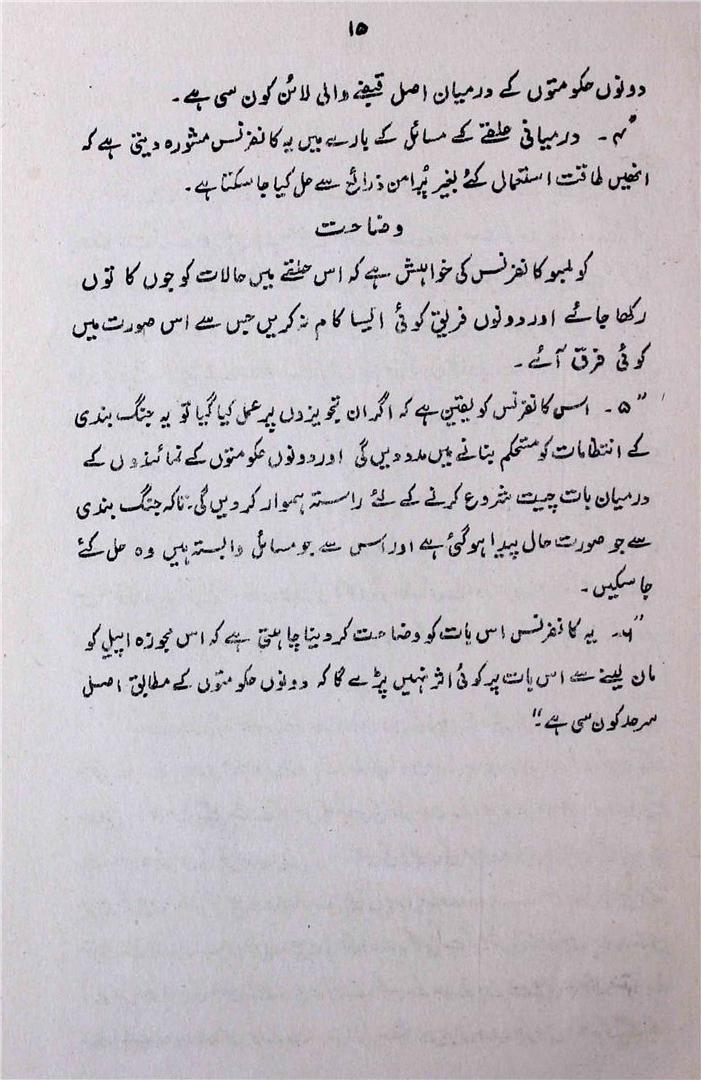 ۱۵
دونوں حکومتوں کے درمیان اصل قبضے والی لائن کون سی ہے۔
"۴۔ درمیانی علقے کے مسائل کے بارے میں یہ کانفرنس مشورہ دیتی ہے کہ
انھیں طاقت استعمال کئے بغیر پُرامن ذرائع سے حل کیا جا سکتا ہے۔
وضاحت
کولمبو کانفرنس کی خواہش ہے کہ اس حلقے میں حالات کو جوں کا توں
رکھا جائے اور دونوں فریق کوئی ایسا کام نہ کریں جس سے اس صورت میں
کوئی فرق آئے۔
"۵۔ اس کانفرنس کو یقین ہے کہ اگر ان تجویزوں پر عمل کیا گیا تو یہ جنگ بندی
کے انتظامات کو مستحکم بنانے میں مدد دیں گی اور دونوں حکومتوں کے نمائندوں کے
درمیان بات چیت شروع کرنے کے لئے راستہ ہموار کر دیں گی۔ تاکہ جنگ بندی
سے جو صورت حال پیدا ہو گئی ہے اور اس سے جو مسائل وابستہ ہیں وہ حل کئے
جا سکیں۔
"۶۔ یہ کانفرنس اس بات کو وضاحت کر دینا چاہتی ہے کہ اس مجوزہ اپیل کو
مان لینے سے اس بات پر کوئی اثر نہیں پڑے گا کہ دونوں حکومتوں کے مطابق اصل
سرحد کون سی ہے۔"